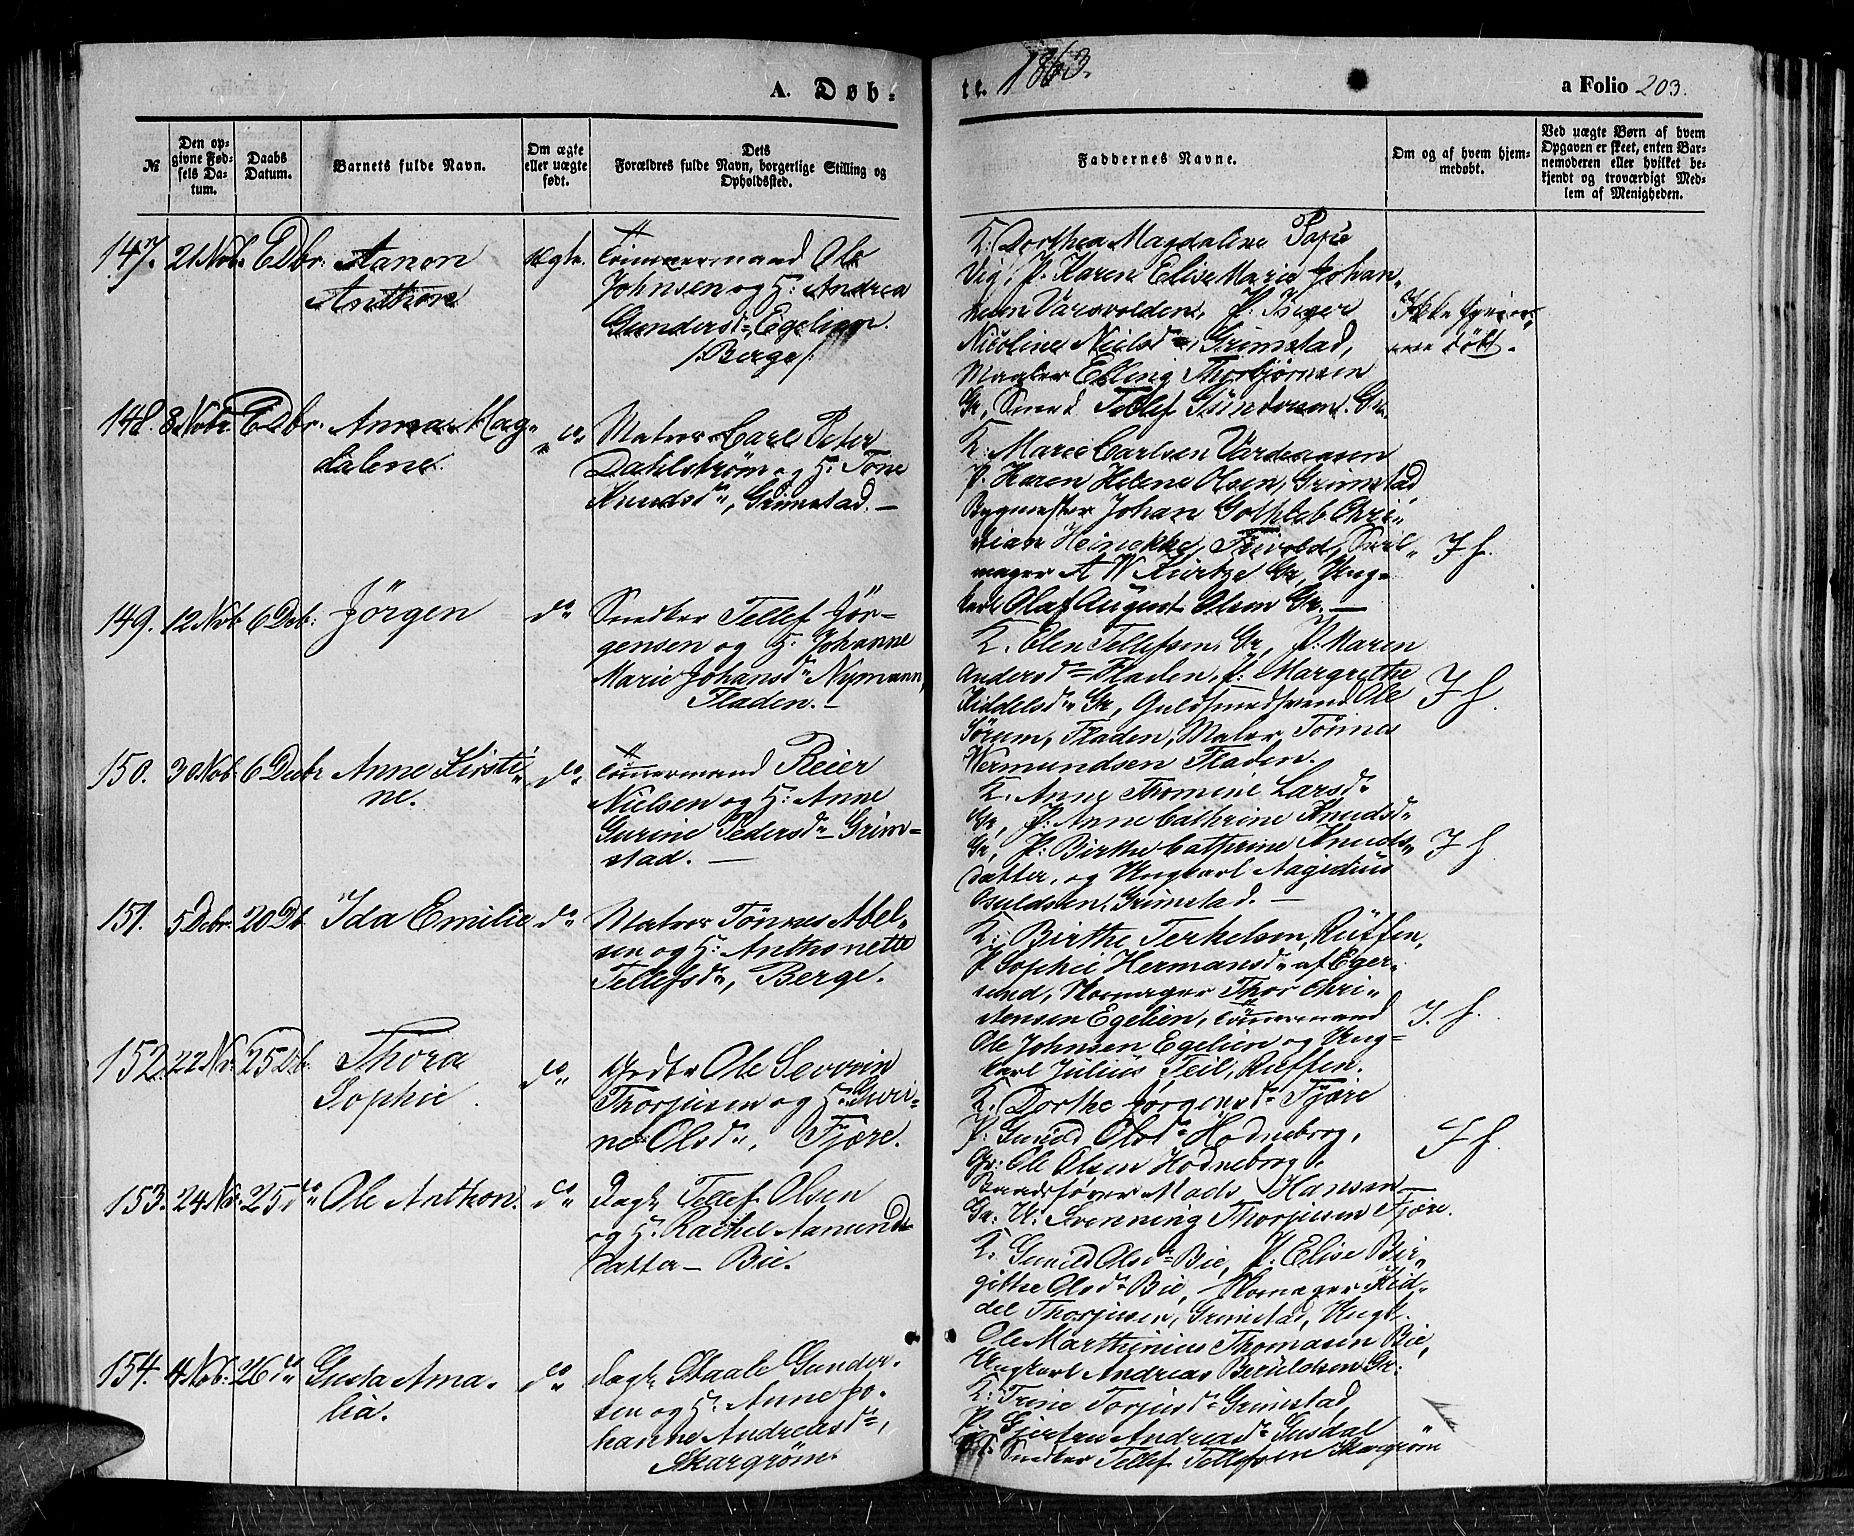 A. Døb-
te. 1863.
a Folio 203.
№
Den op-
givne Fød-
sels Da-
tum.
Daabs
Datum.
Barnets fulde Navn.
Om ægte
eller uægte
født.
Dets
Forældres fulde Navn, borgerlige Stilling og
Opholdssted.
Faddernes Navne.
Om og af hvem hjem-
medøbt.
Ved uægte Børn af hvem
Opgaven er skeet, enten Bar-
nemoderen eller hvilket be-
kjendt og troværdigt Med-
lem af Menigheden.
147. 21 Nob. 6 Dbr. Aanon
Anthon
ægte.
Tömmermand Ole
Johnsen og H. Andrea
Gundersdr Egelien.
/:Berge/:
K: Dorthea Magdaline
Vig, P. Karen Elise Marie Johan-
Nicoline Nielsdr, Grimstad,
Magler Elling Thorbjörnsen
Gr, Smed Tellef Gundersen. Gr.
Ikke
døbt.
148. 8 Nobr 6 Dbr. Anna Mag-
dalene.
do
Matros Carl Peter
Dahlström og H. Tone
Knudsdr, Grimstad. —
K: Marie Carlsen
P. Karen Helene Olsen, Grimstad
Bygmester Johan Gothleb Chri-
stian Heinekke, Frivold, Seil-
mager A W Kurtze Gr, Ung-
karl Olaf August Olsen Gr. —
J f.
149. 12 Nob 6 Deb: Jörgen
do
Snedker Tellef Jör-
gensen og H. Johanne
Marie Johansdr Nymann,
Fladen. —
K. Elen Tellefsen, Gr, P: Maren
Andersdr Fladen, P: Margrethe
Kiddelsdr Gr, Guldsmedsvend Ole
Sörum, Fladen, Maler Tönnes
Wermundsen Fladen.
J f.
150. 30 Nob. 6 Decbr Anne Kirsti-
ne.
do
Tömmermand Reier
Nielsen og H: Anne
Gurine Pedersdr Grim-
stad. —
K. Anne Thomine Larsdr
Gr, P: Anne Cathrine Knudsdr
Gr, P: Birthe Cathrine Knuds-
datter, og Ungkarl Aagidius
Osuldsen, Grimstad. —
J f.
151. 5 Debr. 20 Db. Ida Emilie
do
Matros Tönnes Abel-
sen og H: Anthonette
Tellefsdr, Berge.
K: Birthe Terkelsen, Rüffen,
P Sophie Hermansdr af Eger-
sund, Skomager Thor Chri-
stensen Egelien, Tömmermand
Ole Johnsen Egelien og Ung-
karl Julius Feil, Rüffen.
J. f.
152. 22 Nr. 25 Db. Thora
Sophie
do
Ole Severin
Thorjusen og H. Guri-
ne Olsdr, Fjære.
K. Dorthe Jörgensdr Fjære
P: Gunild Olsdr Hodneborg,
Gr: Ole Olsen Hodneborg,
Baadsfører Mads Hansen
Gr. U. Svenning Thorjusen Fjære.
J f.
153. 24 Nr. 25 do Ole Anthon.
do
Dagl: Tellef Olsen
og H. Rachel Aamunds-
datter — Bie.
K. Gunild Olsdr Bie, P. Elise Bir-
gitte Olsdr Bie, Skomager Kid-
del Thorjusen, Grimstad, Ungk.
Ole Marthinius Thomasen Bie,
Ungkarl Andreas Gr:
154. 4 Nob: 26 do Gusta Ama-
lia.
do
Dagl: Staale Gunder-
sen og H. Anne Jo-
hanne Andreasdr,
Skargröm.
K: Trine Torjusdr Grimstad,
P. Gjertru Andreasdr Gusdal
Snedker Tellef Tellefsen Skargröm